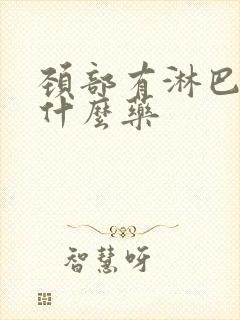 颈部有淋巴
什麼藥
智慧呀